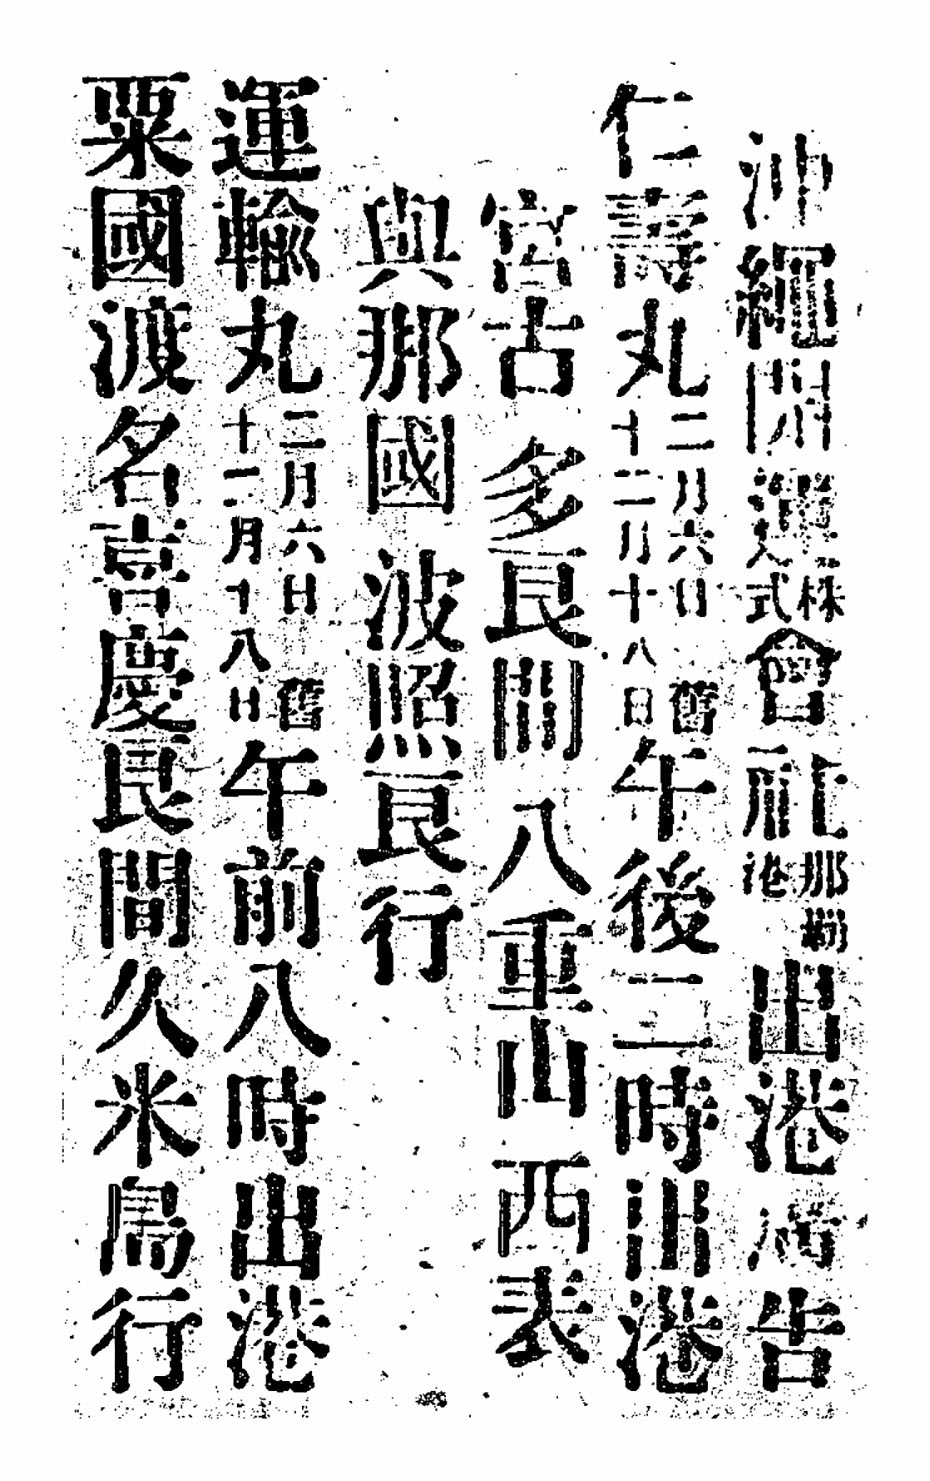 沖繩開運株式會社那覇港出港廣告
仁壽丸二月六日舊十二月十八日午後二時出港
宮古 多良間 八重山 西表
與那國 波照良行
運輸丸二月六日舊十二月十八日午前八時出港
粟國渡名喜慶良間久米島行